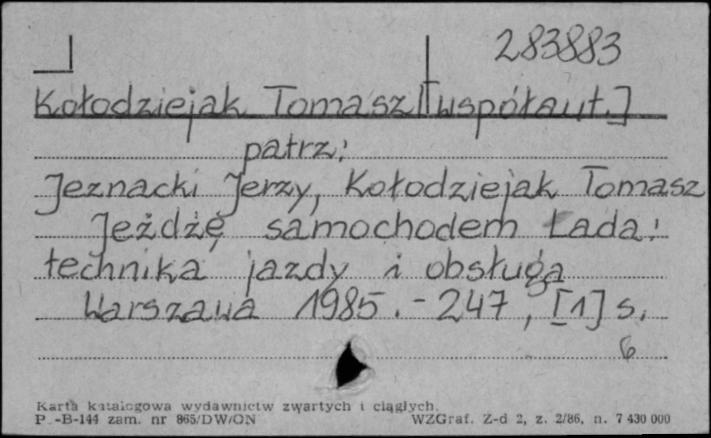 283883
Kołodziejak Tomasz [współaut.]
patrz:
Jeznacki Jerzy, Kołodziejak Tomasz
Jeżdżę samochodem Łada:
technika jazdy i obsługa
Warszawa 1985. - 247, [1] s.
6
Karta katalogowa wydawnictw zwartych i ciągłych.
P.-B-144 zam. nr 865/DW/ON WZGraf. Z-d 2, z. 2/86, n. 7 430 000